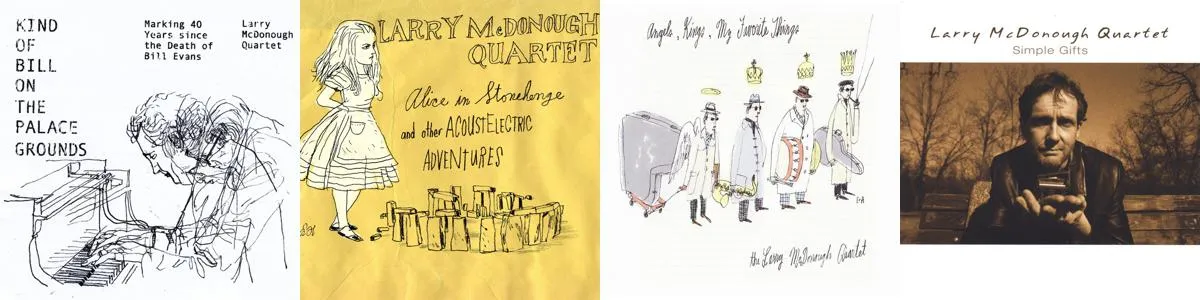 KIND
OF
BILL
ON
THE
PALACE
GROUNDS
Marking 40
Years since
the Death of
Bill Evans
Larry
McDonough
Quartet
LARRY McDONOUGH
QUARTET
Alice in Stonehenge
and other ACOUSTELECTRIC
ADVENTURES
Angels, Kings, My Favorite Things
the Larry McDonough Quartet
Larry McDonough Quartet
Simple Gifts